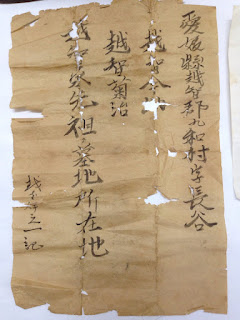 愛媛縣越智郡九和村字長谷
越智
越智菊治
越智家先祖墓地所在地
越智 一記